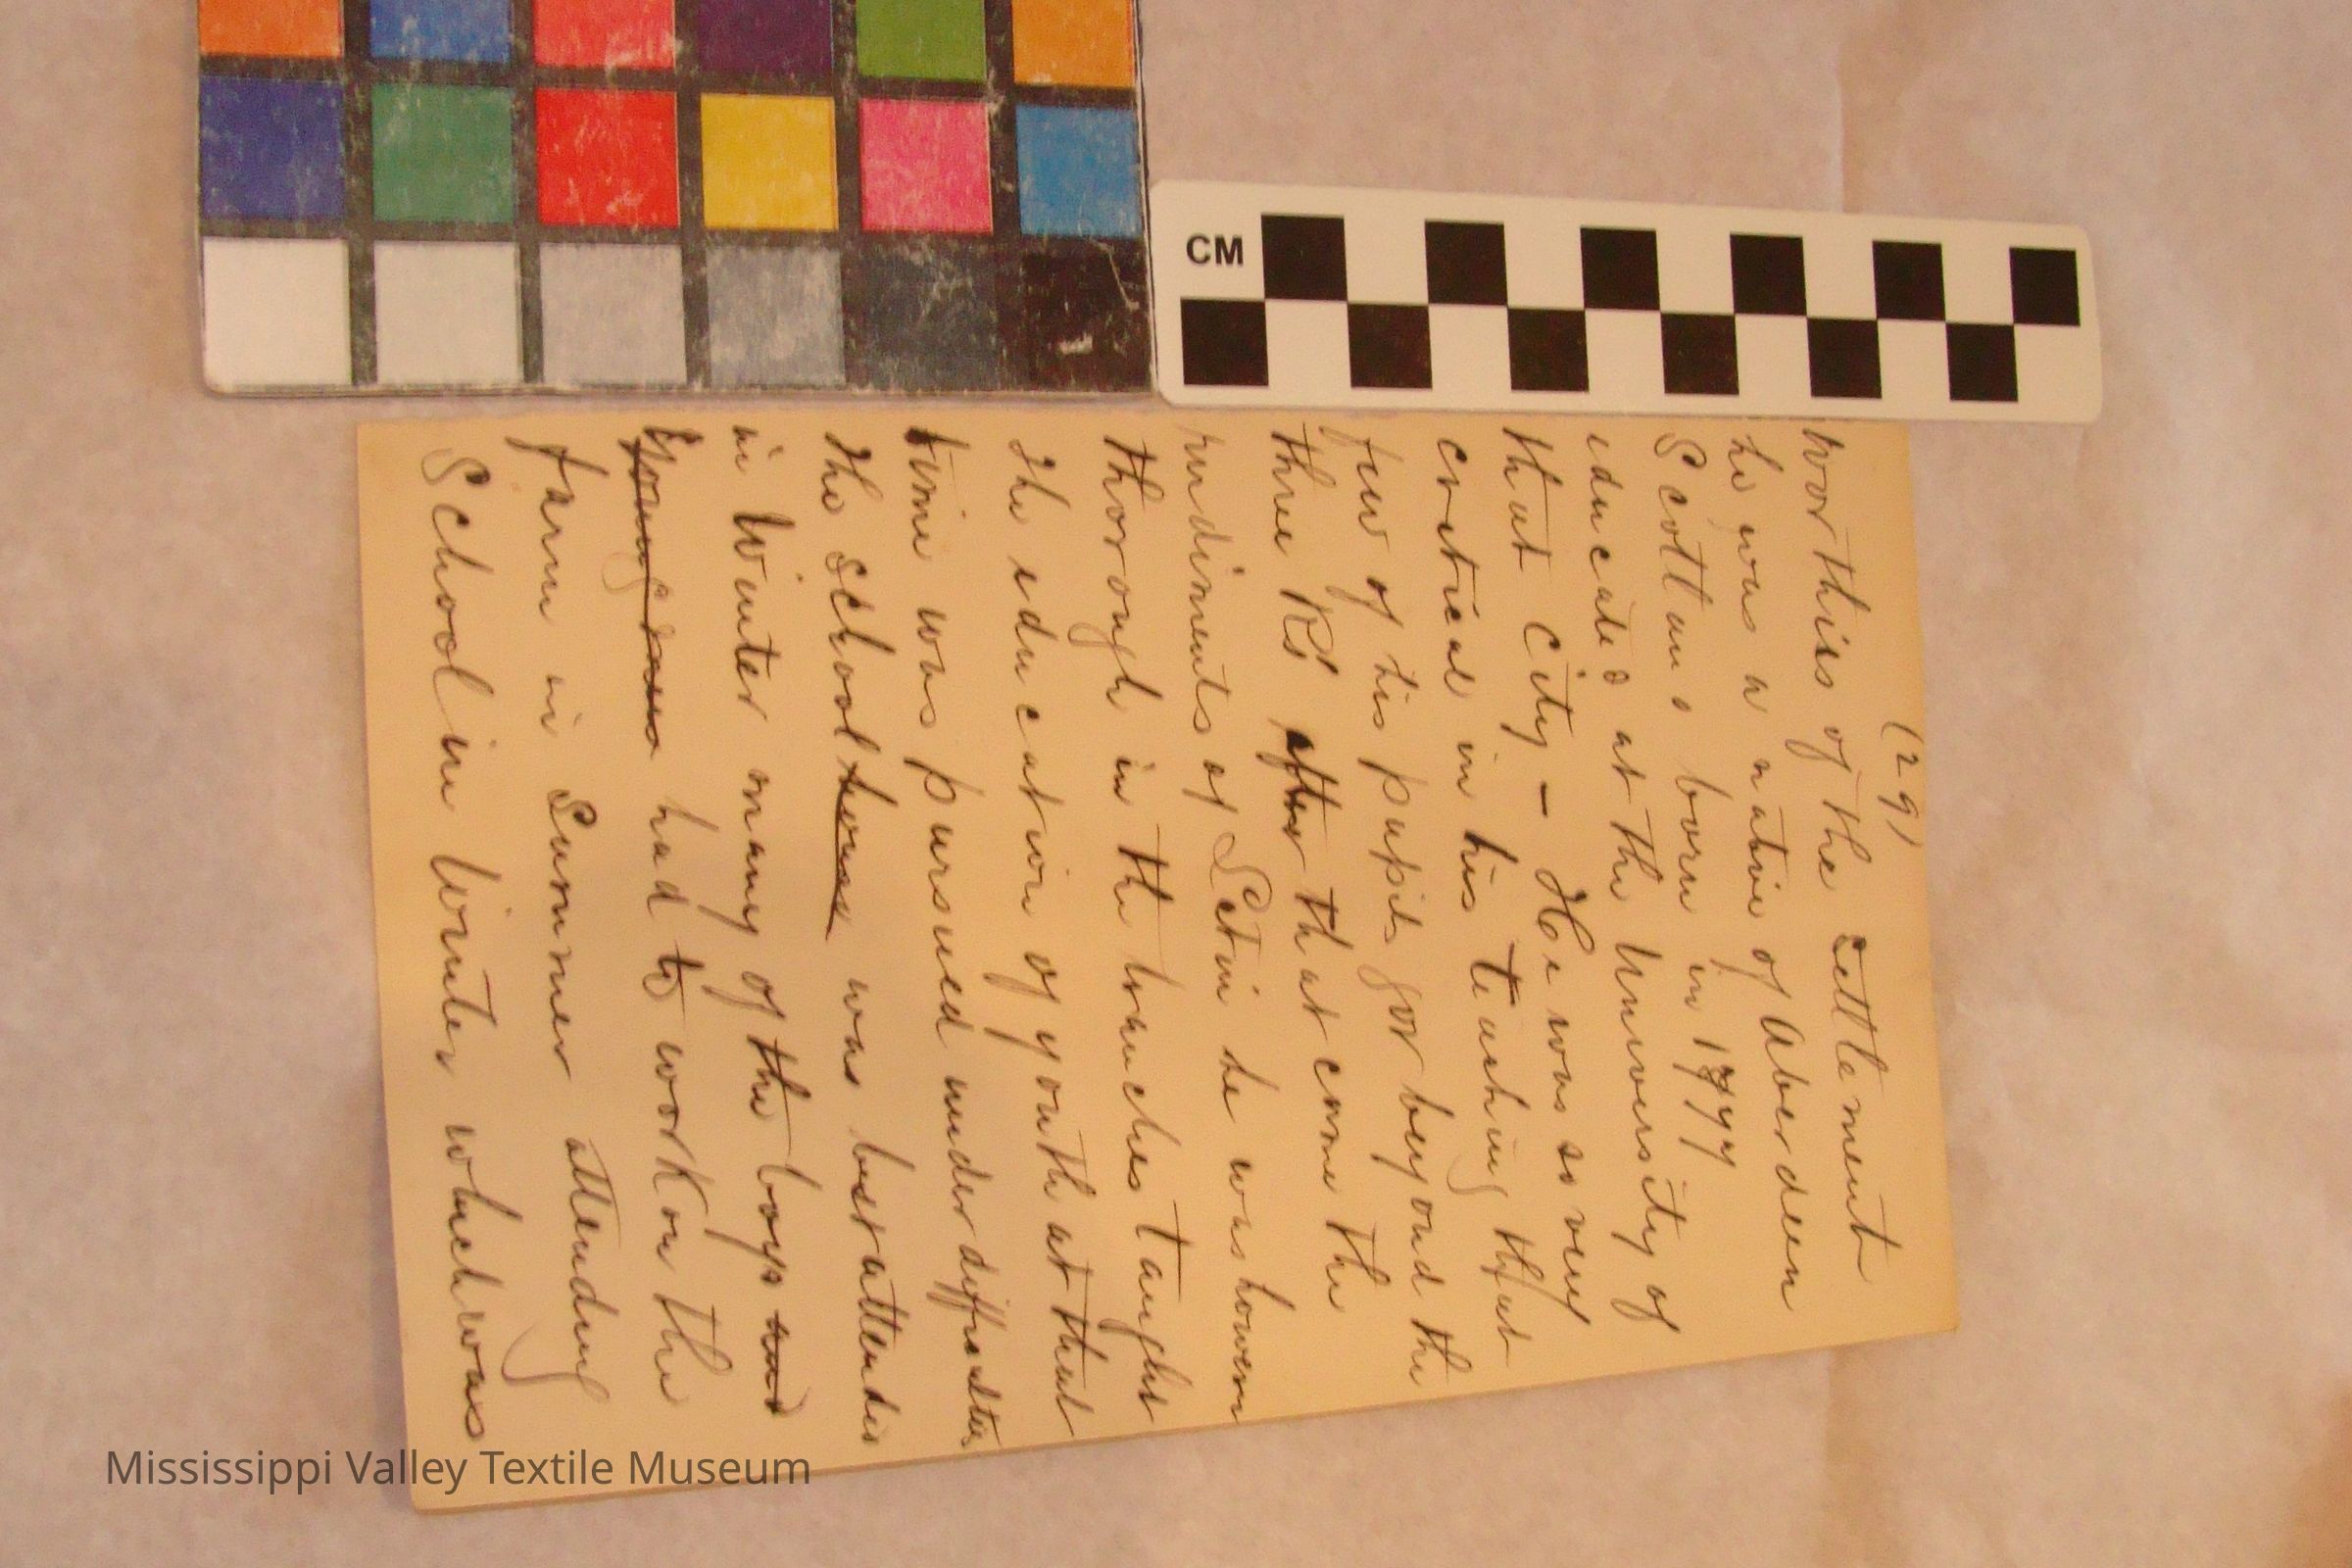 (29)
worthies of the settlement
he was a native of Aberdeen
Scotland born in 1777
educated at the University of
that city - He was so very
critical in his teaching that
few of his pupils got beyond the
three R's after that came the
rudiments of Latin he was however
thorough in the branches taught
The education of youth at that
time was pursued under difficulties
the school house was best attended
in Winter many of the boys and
young men had to work on the
farm in Summer attending
School in Winter which was
CM
Mississippi Valley Textile Museum